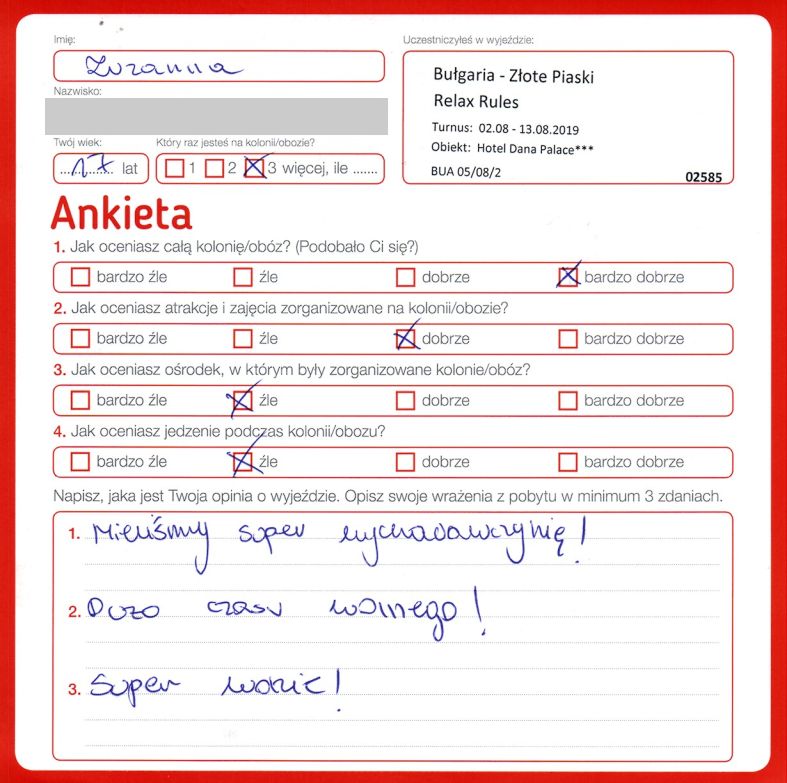 Imię:
Zuzanna
Nazwisko:
Twój wiek:
17 lat
Który raz jesteś na kolonii/obozie?
1 2 3 więcej, ile .......
Uczestniczyłeś w wyjeździe:
Bułgaria - Złote Piaski
Relax Rules
Turnus: 02.08 - 13.08.2019
Obiekt: Hotel Dana Palace***
BUA 05/08/2
02585
Ankieta
1. Jak oceniasz całą kolonię/obóz? (Podobało Ci się?)
bardzo źle źle dobrze bardzo dobrze
2. Jak oceniasz atrakcje i zajęcia zorganizowane na kolonii/obozie?
bardzo źle źle dobrze bardzo dobrze
3. Jak oceniasz ośrodek, w którym były zorganizowane kolonie/obóz?
bardzo źle źle dobrze bardzo dobrze
4. Jak oceniasz jedzenie podczas kolonii/obozu?
bardzo źle źle dobrze bardzo dobrze
Napisz, jaka jest Twoja opinia o wyjeździe. Opisz swoje wrażenia z pobytu w minimum 3 zdaniach.
1. Mieliśmy super wychowawczynię!
2. Duzo czasu wolnego!
3. Super ludzie!